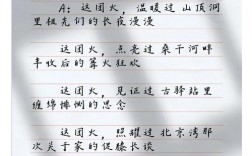 A：这团火，温暖过 山顶洞
里祖先们的长夜漫漫
这团火，点亮过 桑干河畔
丰收后的篝火狂欢
这团火，见证过 古驿站里
缠绵悱恻的思念
这团火，照耀过 北京湾那
次关于家的促膝长谈